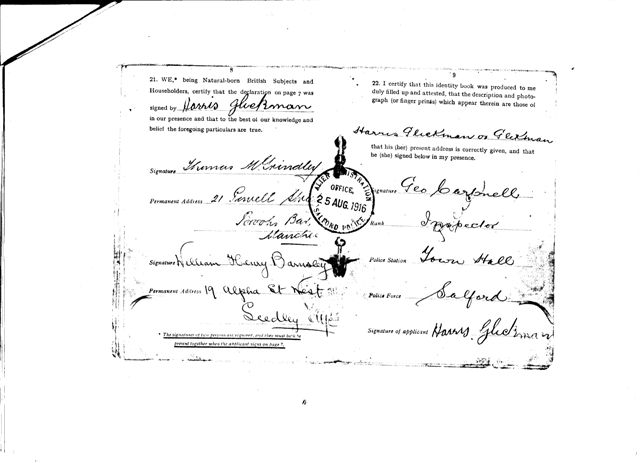 8
21. WE,* being Natural-born British Subjects and
Householders, certify that the declaration on page 7 was
signed by Harris Glickman
in our presence and that to the best of our knowledge and
belief the foregoing particulars are true.
Signature Thomas McGrindley
Permanent Address 21 Powell
Manche
Signature William Henry Barnsley
Permanent Address 19 Alpha St West
Seedley
* The signatures of two persons are required, and they must both be
present together when the applicant signs on page 7.
ALIEN REGISTRATION
OFFICE,
25 AUG. 1916
SALFORD POLICE
9
22. I certify that this identity book was produced to me
duly filled up and attested, that the description and photo-
graph (or finger prints) which appear therein are those of
Harris Glickman or Glikman
that his (her) present address is correctly given, and that
he (she) signed below in my presence.
Signature Geo
Rank Inspector
Police Station Town Hall
Police Force Salford
Signature of applicant Harris Glickman